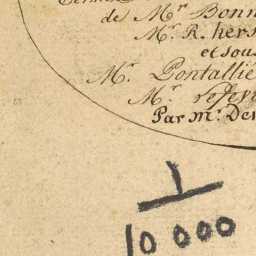 de Mr Bonn
Mr. R. hers
et sous
Mr. Pontallié
Mr.
Par Mr. De
1
10 000